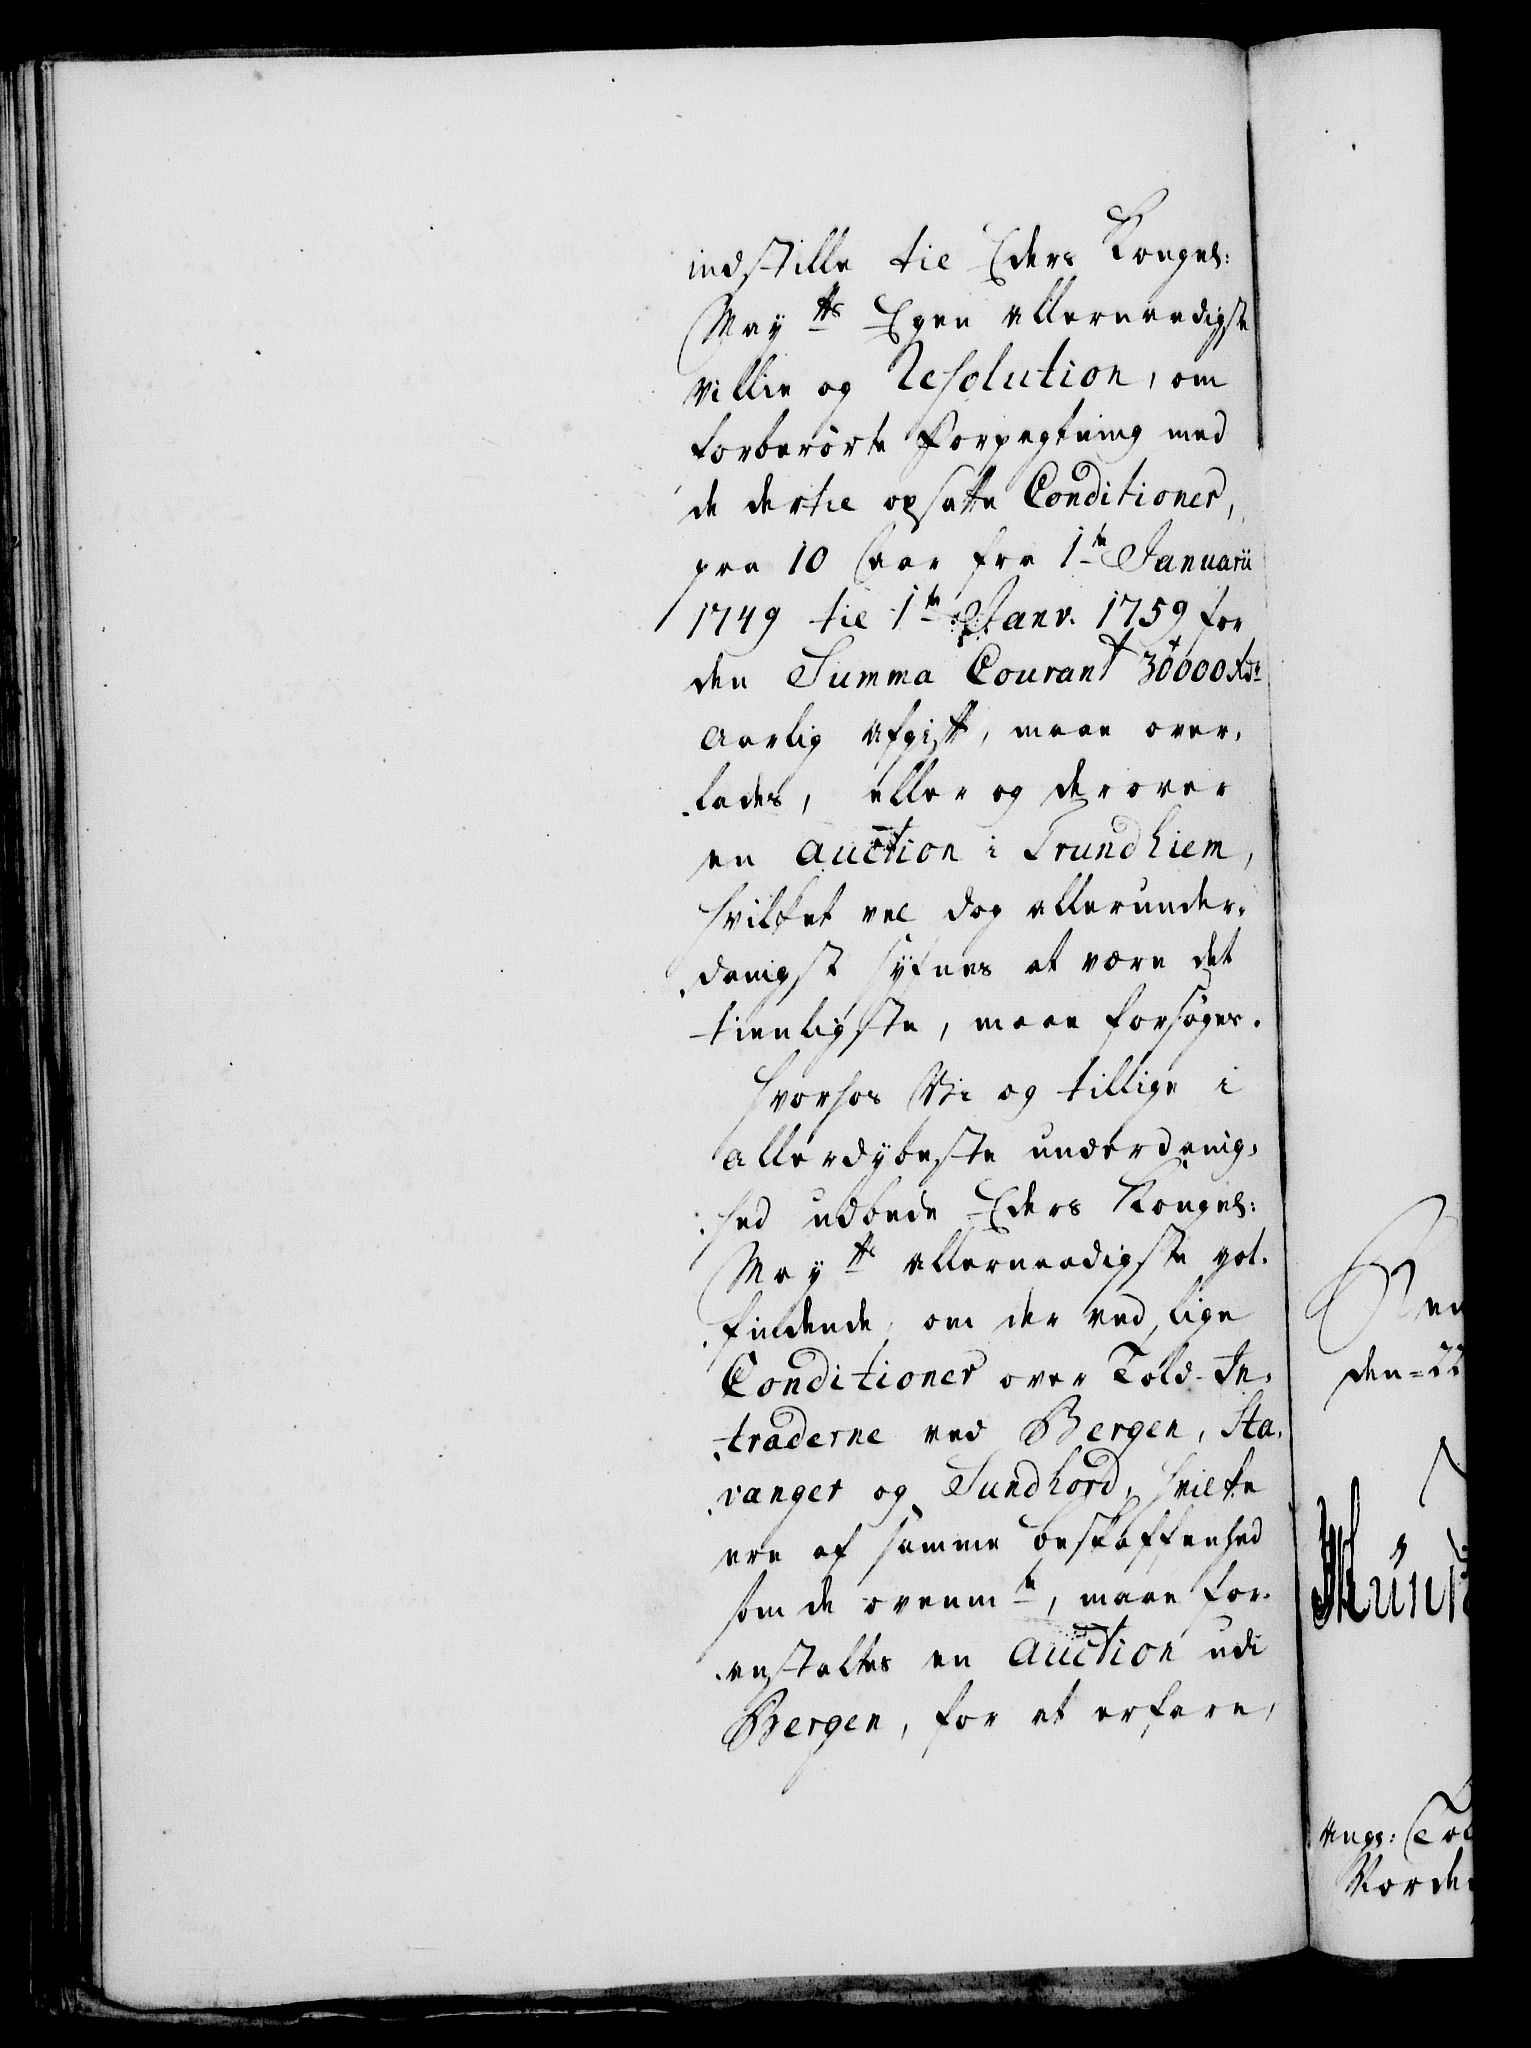 indstille til Eders Kongel:
May.tts Egen allernaadigste
Villie og Resolution, om
forberörte Forpagtning med
de dertil opsatte Conditioner,
paa 10 Aar fra 1te Januarii
1749 til 1te Janv. 1759 for
den Summa Courant 30000 Rdr
Aarlig Afgift, maae over-
lades, eller og derover
en Auction i Trundhiem,
hvilket vel dog allerunder-
danigst sÿnes at være det
tienligste, maae forsöges.
Hvorhos Vi og tillige i
allerdÿbeste underdanig-
hed udbede Eders Kongel:
May.tts allernaadigste got-
findende, om der ved lige
Conditioner over Told-In-
traderne ved Bergen, Sta-
vanger og Sundhord, hvilke
ere af samme beskaffenhed
som de ovenmte, maae for-
anstaltes en Auction udi
Bergen, for at erfare,
den 22